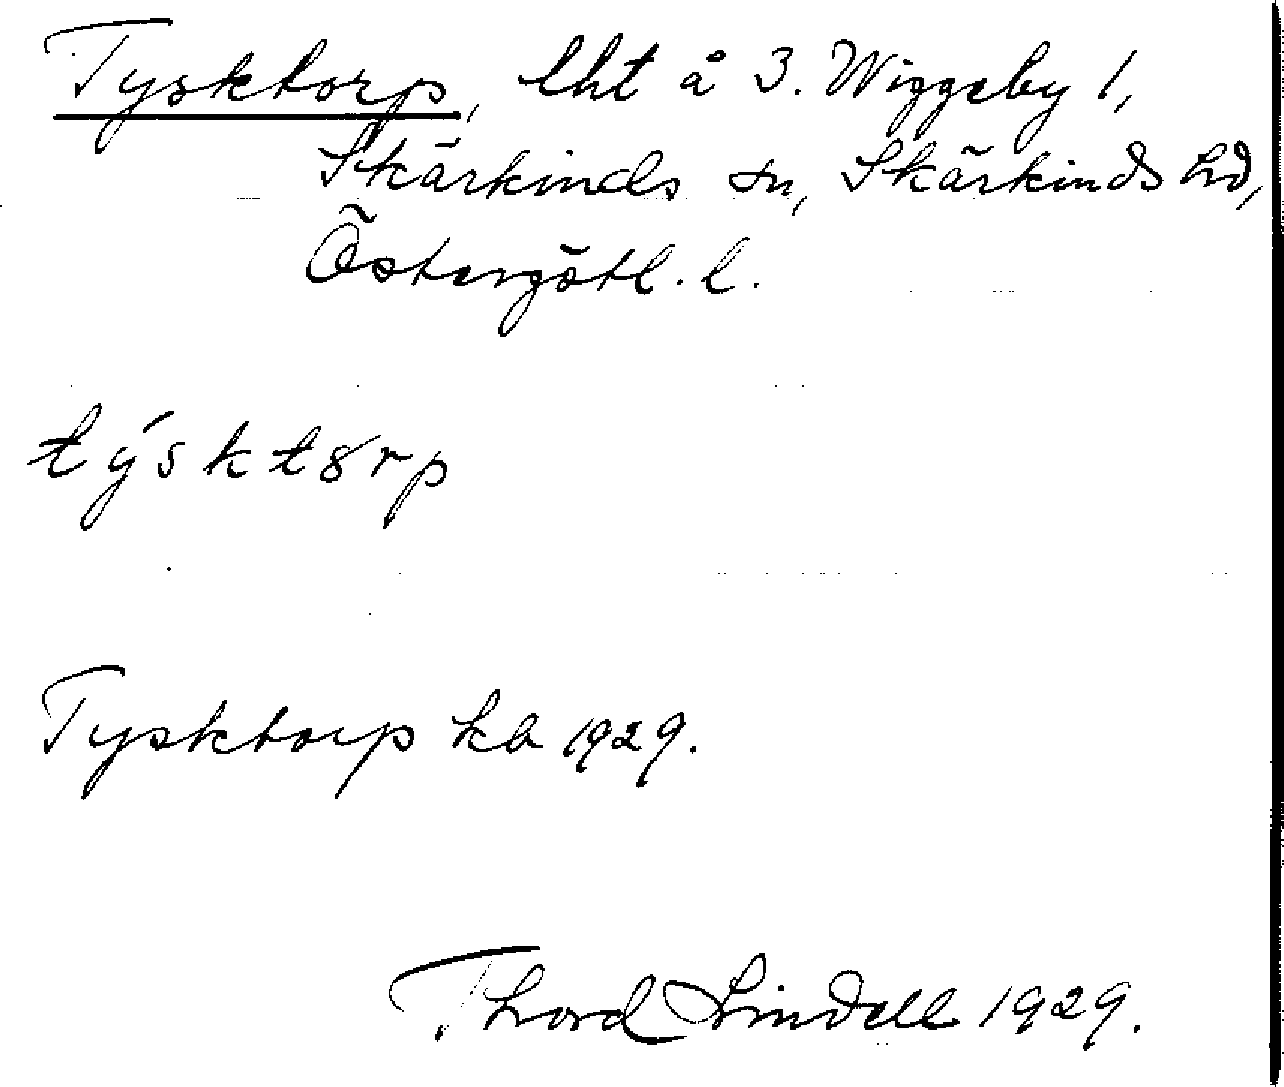 Tysktorp, lht å 3. Wiggeby 1,
Skärkinds sn, Skärkinds hd,
Östergötl. l.
týsktȣrp
Tysktorp kb 1929.
Thord Lindell 1929.